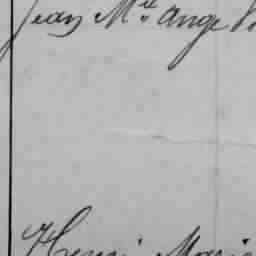 Jean Mel Ange
Henri Marie